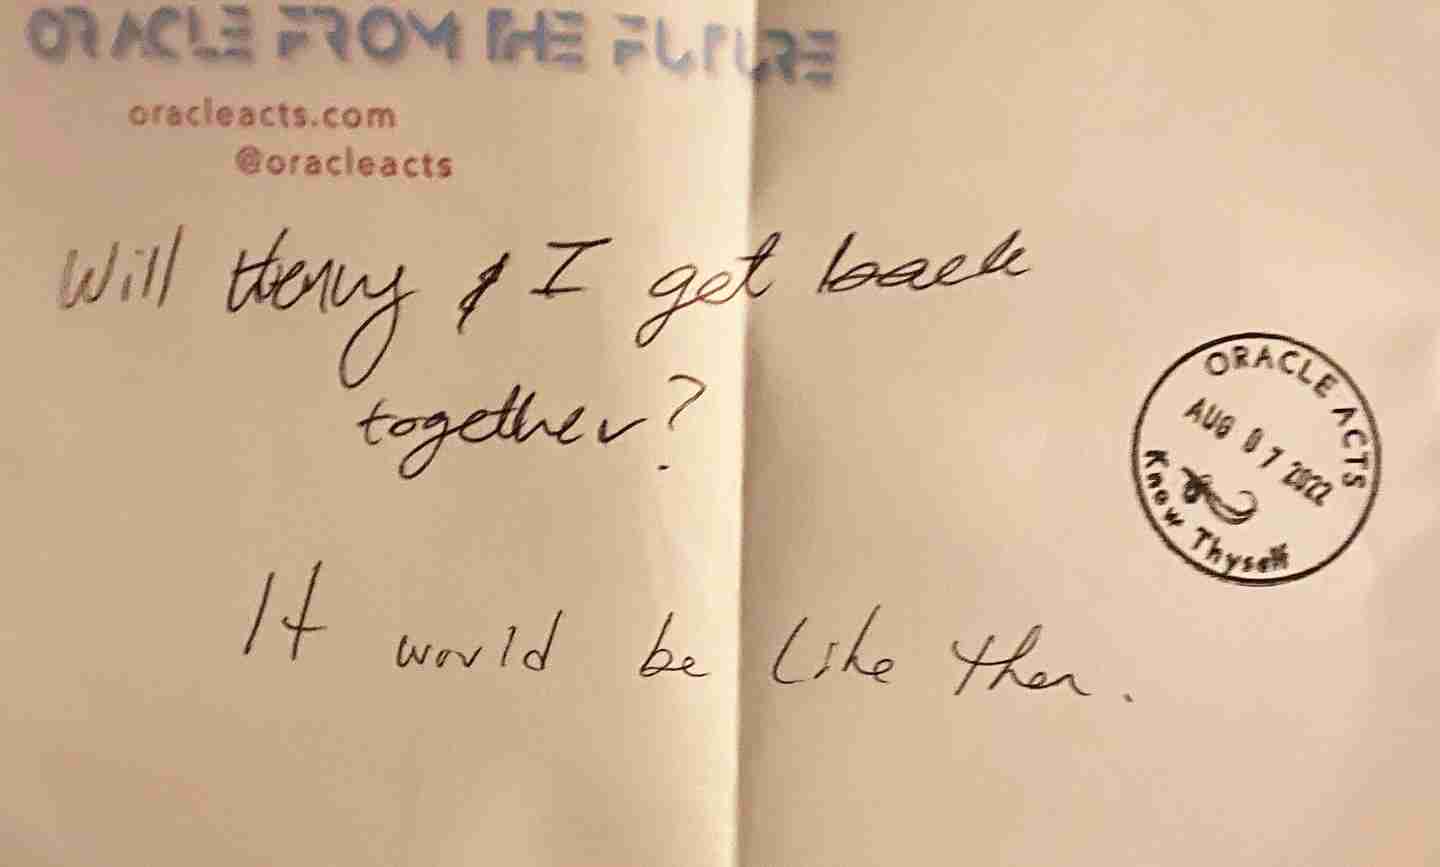 ORACLE FROM THE FUTURE
oracleacts.com
@oracleacts
Will Henry & I get back
together?
ORACLE ACTS
AUG 07 2022
Know Thyself
It would be like then.